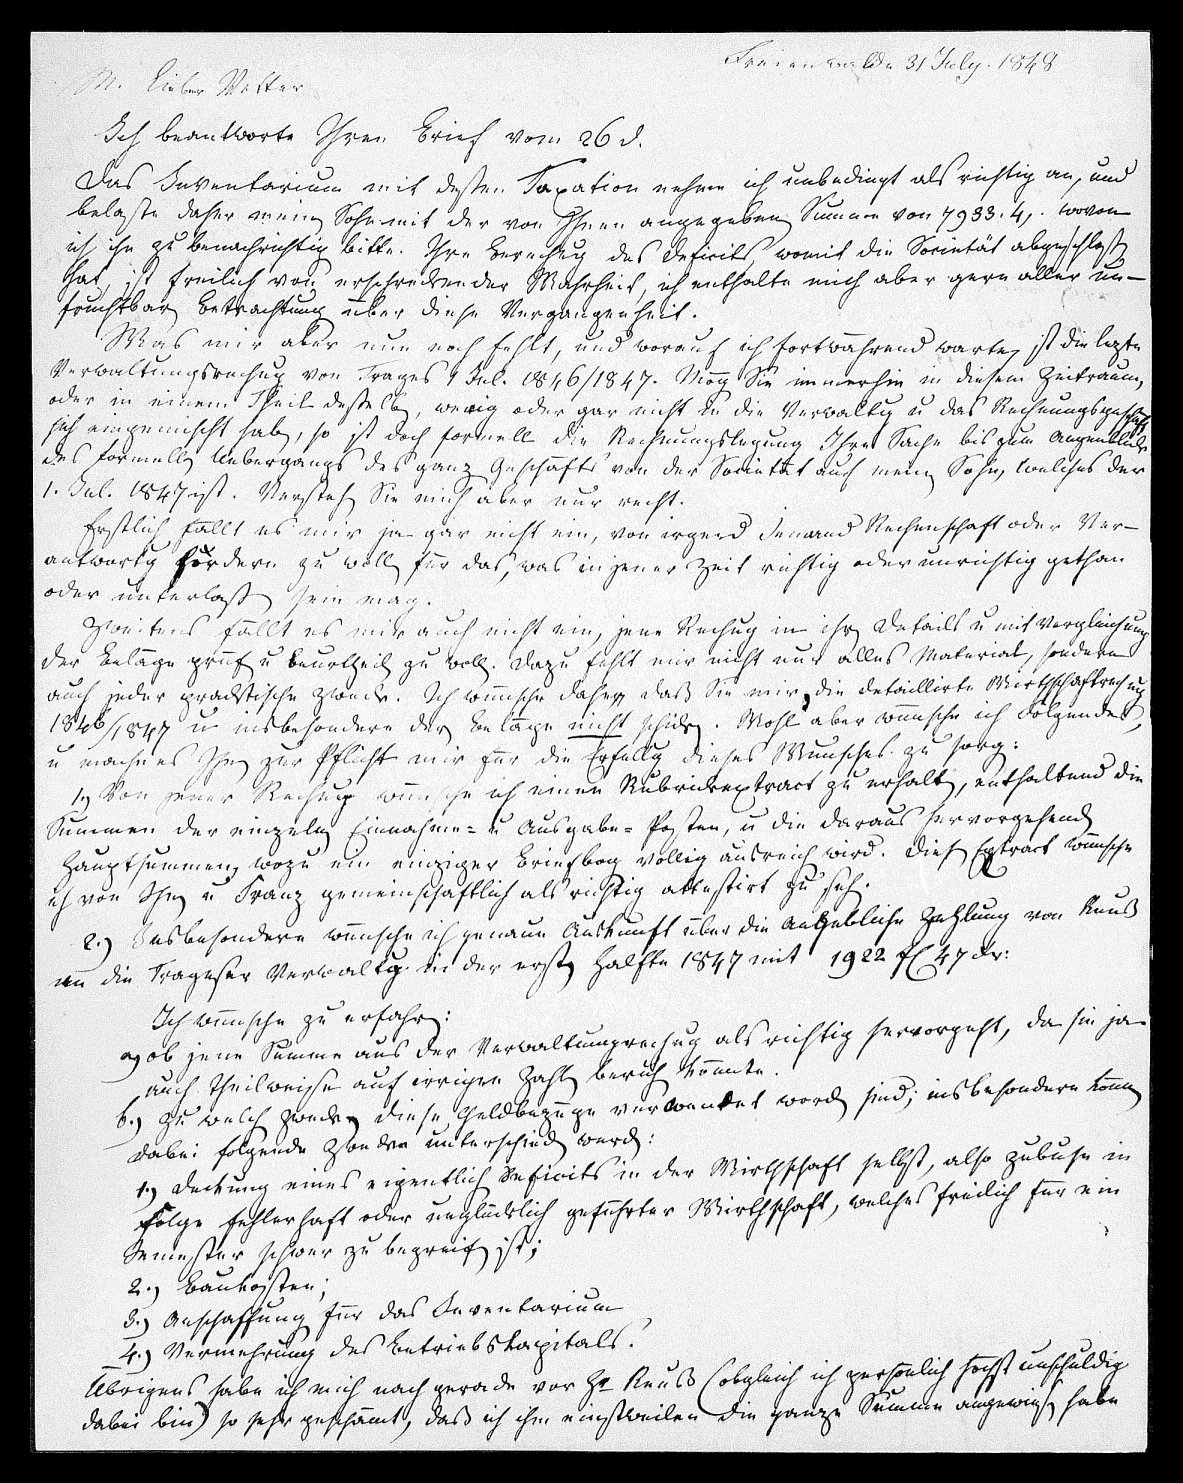 Freienwalde 31 July. 1848
M. lieber Vetter
Ich beantworte Ihren Brief vom 26 d.
Das Inventarium mit dessen Taxation nehme ich unbedingt als richtig an, und
belaste daher meinen Sohn mit der von Ihnen angegebenen Summe von 7933.4,. wovon
ich ihn zu benachrichtigen bitte. Ihre Berechnung des Deficits, womit die Societät abgeschlossen
hat, ist freilich von erschreckender Wahrheit, ich enthalte mich aber gern aller un-
fruchtbaren Betrachtung über diese Vergangenheit.
Was mir aber nun noch fehlt, und worauf ich fortwährend warte, ist die lezte
Verwaltungsrechnung von Trages 1 Jul. 1846/1847. Mögen Sie immerhin in diesem Zeitraum,
oder in einem Theil desselben, wenig oder gar nicht in die Verwaltung u das Rechnungsgeschäft
sich eingemischt haben, so ist doch formell die Rechnungslegung Ihre Sache bis zum Augenblick
des formellen Uebergangs des ganzen Geschäfts von der Societät auf meinen Sohn, welches der
1. Jul. 1847 ist. Verstehen Sie mich aber nur recht.
Erstlich fällt es mir ja gar nicht ein, von irgend Jemand Rechenschaft oder Ver-
antwortung fordern zu wollen für das, was in jener Zeit richtig oder unrichtig gethan
oder unterlassen sein mag.
Zweitens fällt es mir auch nicht ein, jene Rechnung in ihren Details u mit Vergleichung
der Beläge prüfen u beurtheilen zu wollen. Dazu fehlt mir nicht nur alles Material, sondern
auch jeder practische Zweck. Ich wünsche daher, daß Sie mir die detaillirte Wirthschaftsrechnung
1846/1847 u insbesondere der Beläge nicht schicken. Wohl aber wünsche ich Folgendes,
u mache es Ihnen zur Pflicht mir für die Erfüllung dieses Wunsches zu sorgen:
1.) Von jener Rechnung wünsche ich einen Rubrikextract zu erhalten, enthaltend die
Summen der einzelnen Einnahme- u Ausgabe-Posten, u die daraus hervorgehenden
Hauptsummen, wozu ein einziger Briefbogen völlig ausreichen wird. Diesen Extract wünsche
ich von Ihnen u Franz gemeinschaftlich als richtig attestirt zu sehen.
2.) Insbesondere wünsche ich genaue Auskunft über die angebliche Zahlung von Reuß
an die Trageser Verwaltung in der ersten Hälfte 1847 mit 1922 fl 47 kr:
Ich wünsche zu erfahren:
a) ob jene Summe aus der Verwaltungsrechnung als richtig hervorgeht, da sie ja
auch theilweise auf irrigen Zahlen beruhen könnte.
b.) zu welchen Zwecken diese Geldbezüge verwendet worden sind; insbesondere können
dabei folgende Zwecke unterschieden werden:
1.) Deckung eines eigentlichen Deficits in der Wirthschaft selbst, also Zubuße in
Folge fehlerhaft oder unglücklich geführter Wirthschaft, welches freilich für ein
Semester schwer zu begreifen ist;
2.) Baukosten;
3.) Anschaffung für das Inventarium
4.) Vermehrung des Betriebskapitals.
Übrigens habe ich mich nachgerade vor Hr Reuß (obgleich ich persönlich höchst unschuldig
dabei bin) so sehr geschämt, daß ich ihm einstweilen die ganze Summe angewiesen habe